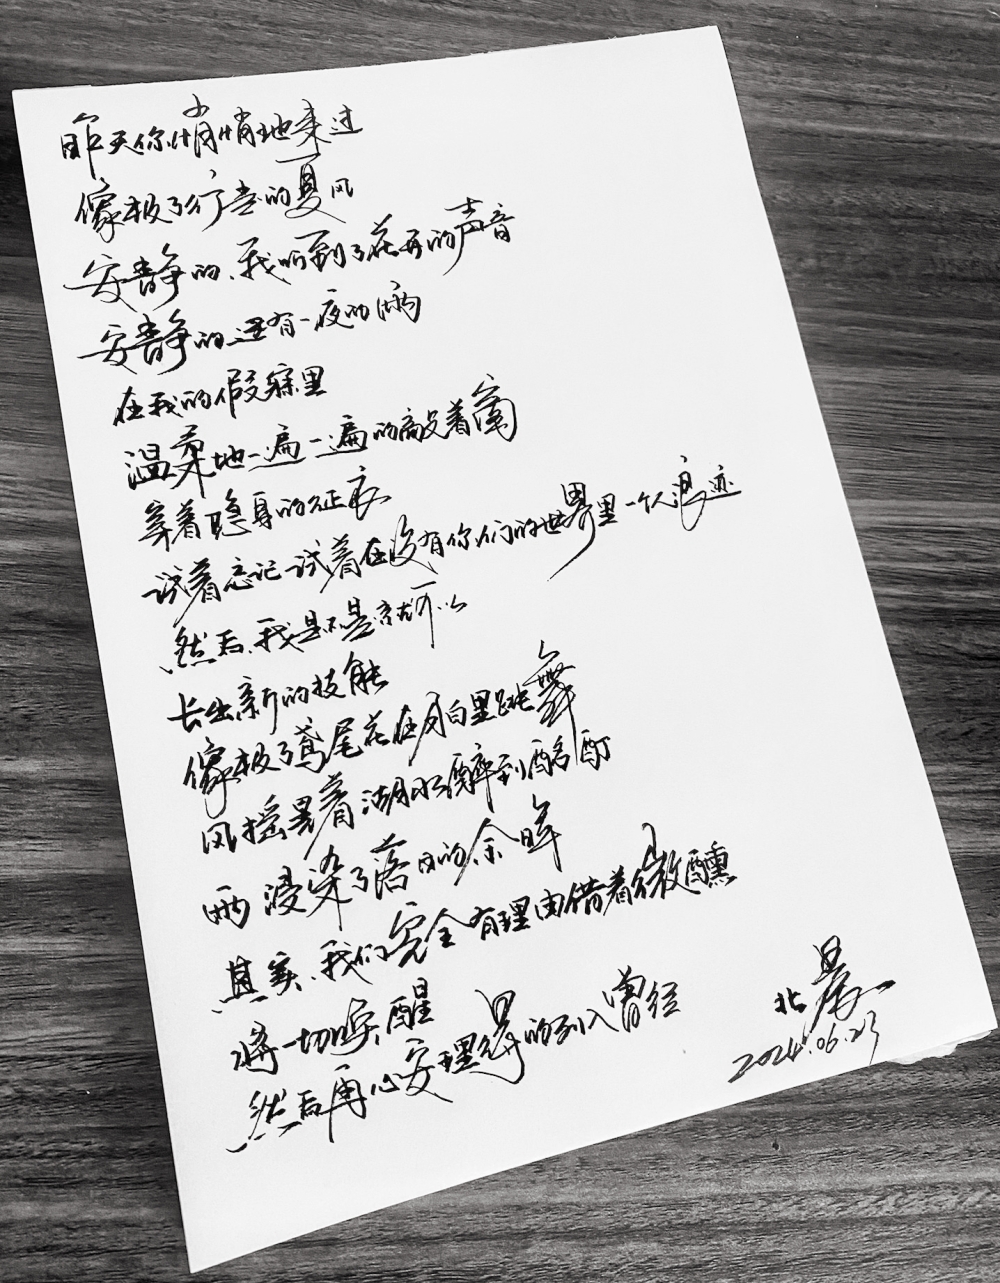 昨天你悄悄地来过
像极了行走的夏风
安静的、我听到了花开的声音
安静的还有一夜的雨
在我的假寐里
温柔地一遍一遍的敲着窗
穿着隐身的征衣
试着忘记试着在没有你们的世界里一个人浪迹
然后、我是不是就可以
长出新的技能
像极了鸢尾花在月白里跳舞
风摇晃着湖水醉到酩酊
雨浸染了落日的余晖
其实、我们完全有理由借着微醺
将一切唤醒
然后再心安理得的列入曾经
北晨
2024.06.23